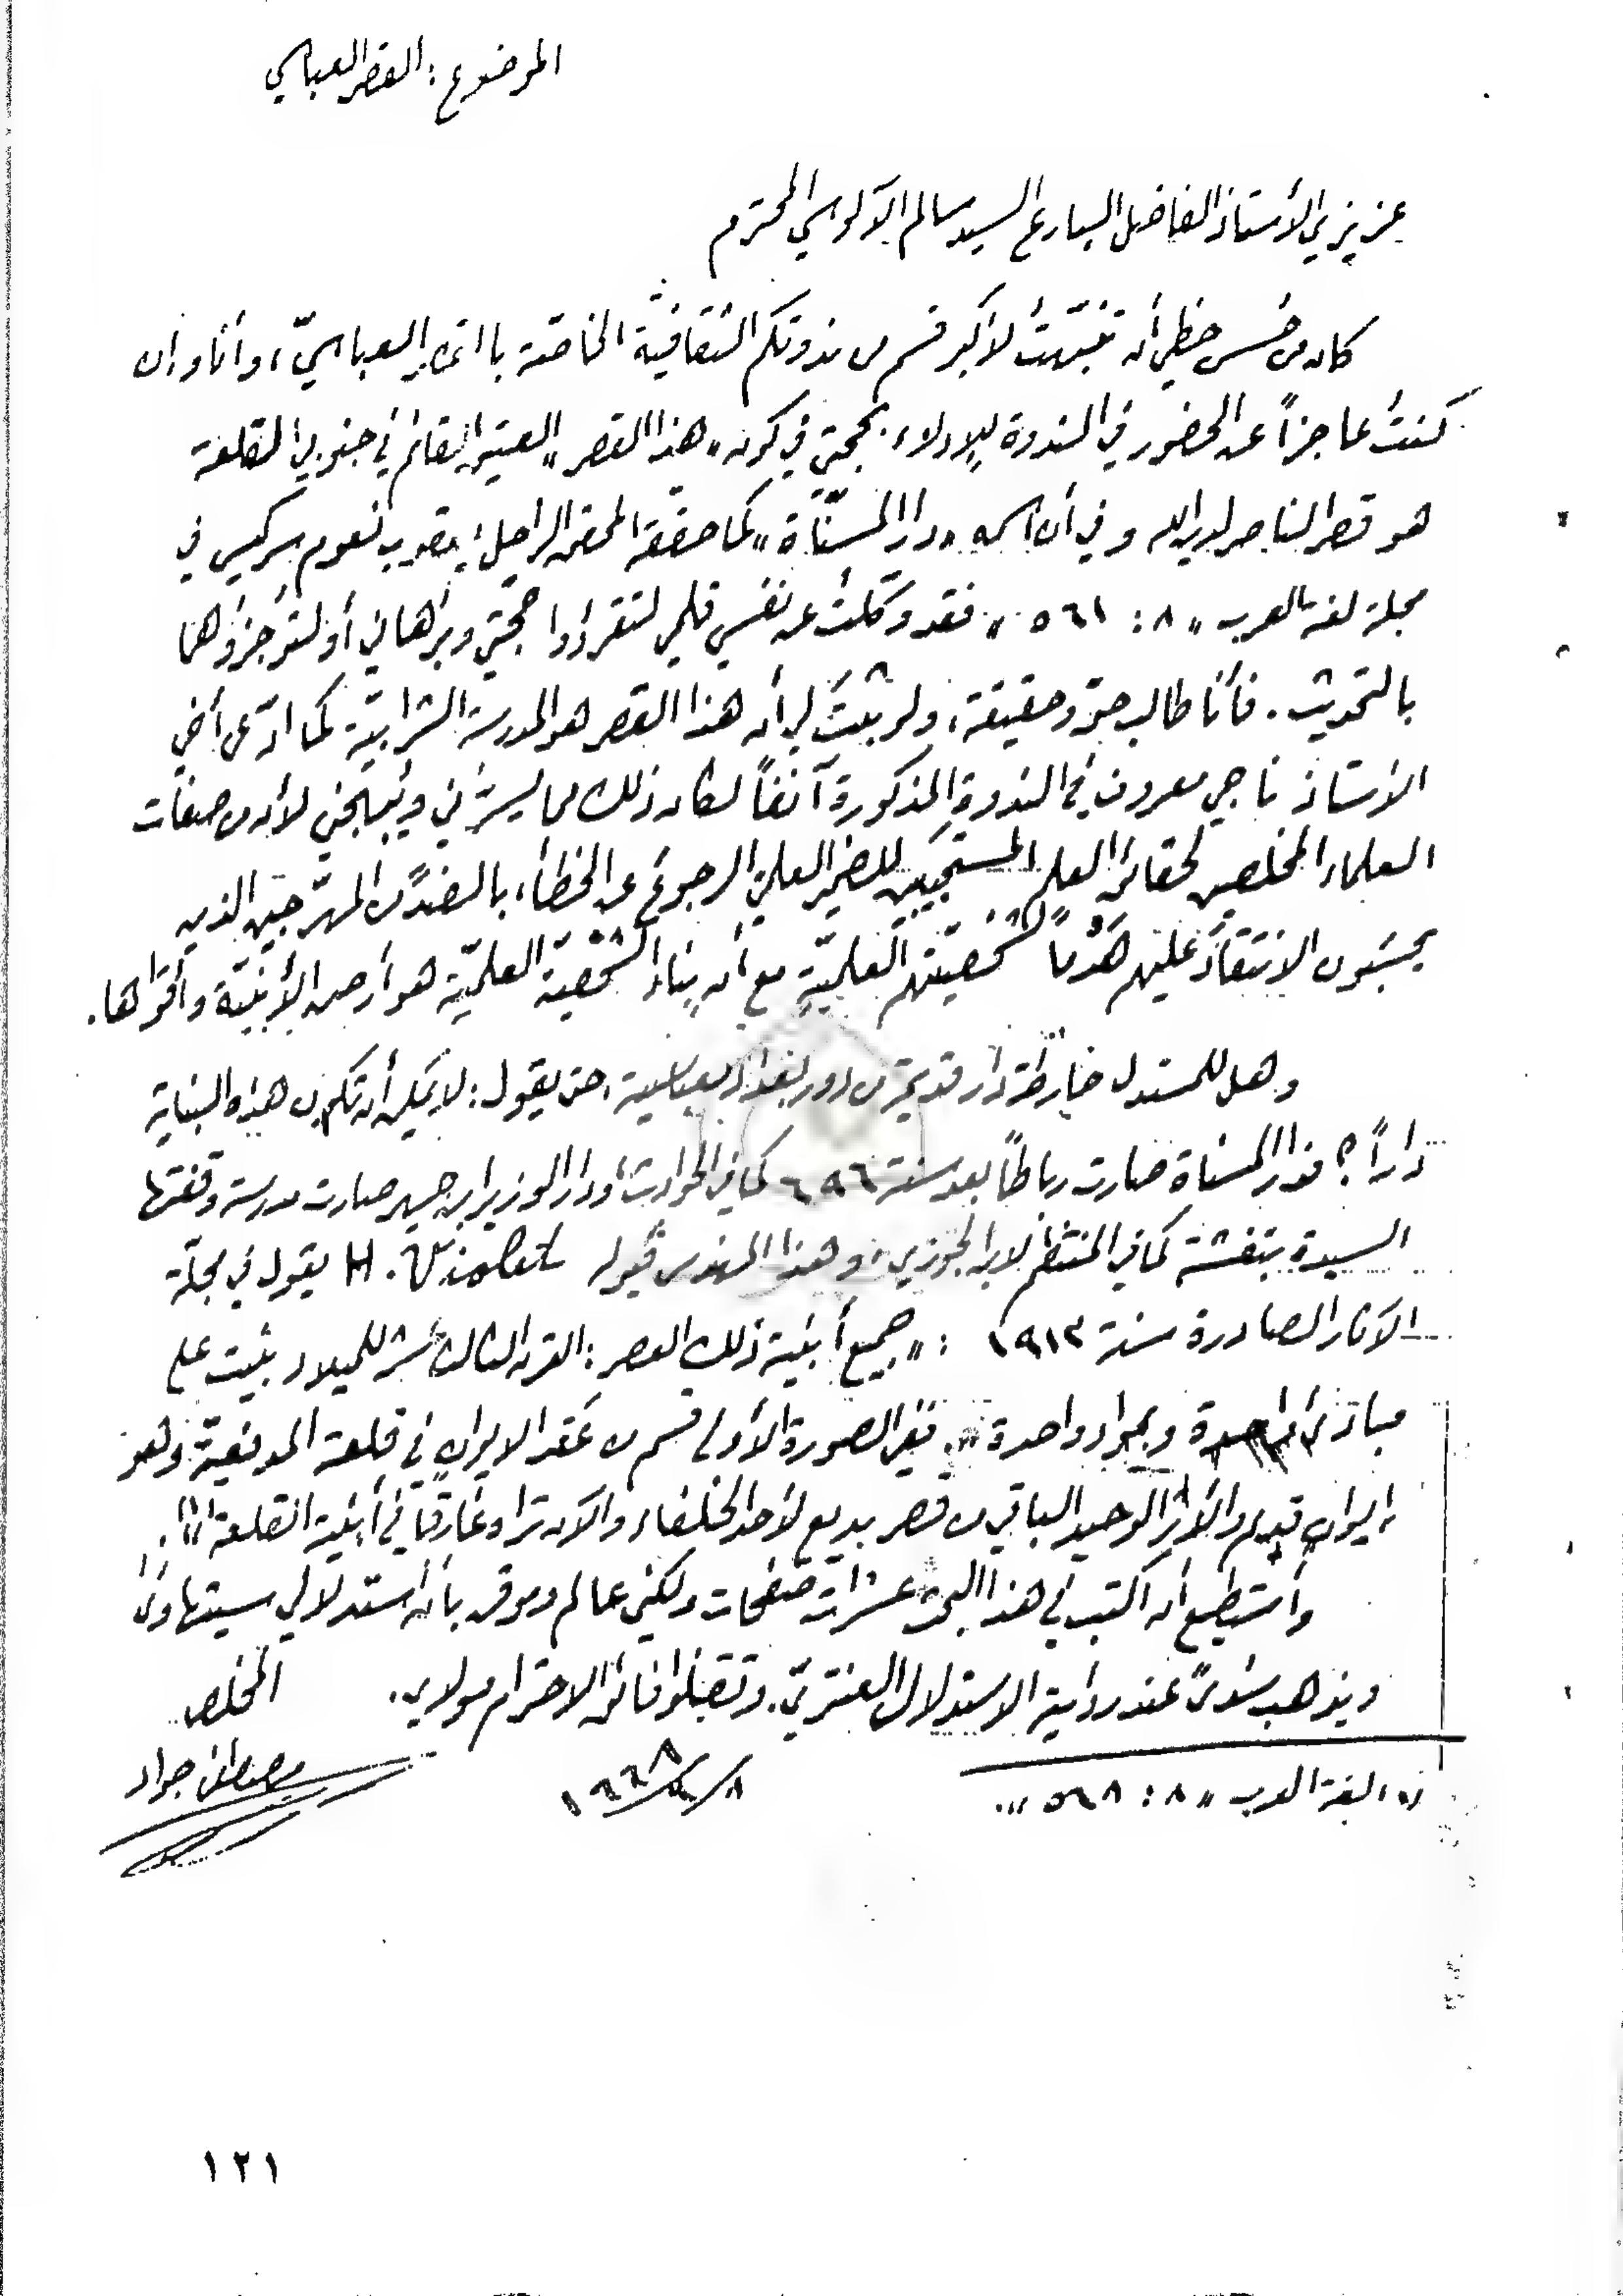 الموضوع : القصر العباسي
عزيزي الأستاذ الفاضل البارع السيد سالم الآلوسي المحترم
كان من حُسن حظي أن تنبّهتُ لأكبر قسم من ندوتكم الثقافيّة الخاصّة بالقصر العباسيّ، وأنا وإن
كنتُ عاجزاً عن الحضور في الندوة للإدلاء بحجتي في كون «هذا القصر» العتيق القائم في جنوبي القلعة
هو قصر الناصر لدين الله وفي أن اسمه «دار المسنّاة» كما حققه المحقق الراحل يعقوب نعوم سركيس في
مجلة لغة العرب «٨ : ٥٦١» فقد وكلتُ عن نفسي قلمي لتقرؤوا حجتي وبرهاني أو لتوجزوهما
بالتحديث . فأنا طالب حق وحقيقة، ولو ثبتَ لي أن هذا القصر هو المدرسة الشرابيّة كما ادّعى أخي
الأستاذ ناجي معروف في الندوة المذكورة آنفاً لكان ذلك مما يسرّني ويبهجني لأن من صفات
العلماء المخلصين لحقائق العلم المستجيبين للضمير العلميّ الرجوعَ عن الخطأ، بالضدّ من المهرّجين الذين
يحسَبون الانتقادَ عليهم هَدْماً لشخصيّتهم العلميّة مع أن بناء الشخصية العلميّة هو أرصن الأبنيّة وأقواها.
وهل للمستدل خارطة دار قديمة من دور بغداد العباسية، حتى يقول: لا يمكن أن تكون هذه البناية
داراً؟ فدار المسناة صارت رباطاً بعد سنة ٦٥٦ كما في الحوادث، ودار الوزير ابن جهير صارت مدرسة وقفتها
السيدة بنفشة كما في المنتظم لابن الجوزي، وهذا المهندس ڤيوله H. Viollet يقول في مجلة
الآثار الصادرة سنة ١٩١٣ : «جميع أبنية ذلك العصر : القرن الثالث عشر للميلاد بُنيت على
مبادئ واحدة وبمواد واحدة». ففي الصورة الأولى قسم من عَقد الايوان في قلعة المدفعيّة وهو
ايوان قديم والأثر الوحيد الباقي من قصر بديع لأحد الخلفاء والآن تراه غارقاً في أبنية القلعة(١)».
وأستطيع أن أكتب في هذا البحث عشرات صفحات ولكني عالم وموقن بأن استدلالي سيتهاوى
ويذهب سُدىً عند رواية الاستدلال العنتريّ. وتقبّلوا فائق الاحترام مولاي.
المخلص
مصطفى جواد
١٩٦٨/٩/٨
(١) لغة العرب «٨ : ٥٦٨».
١٢١